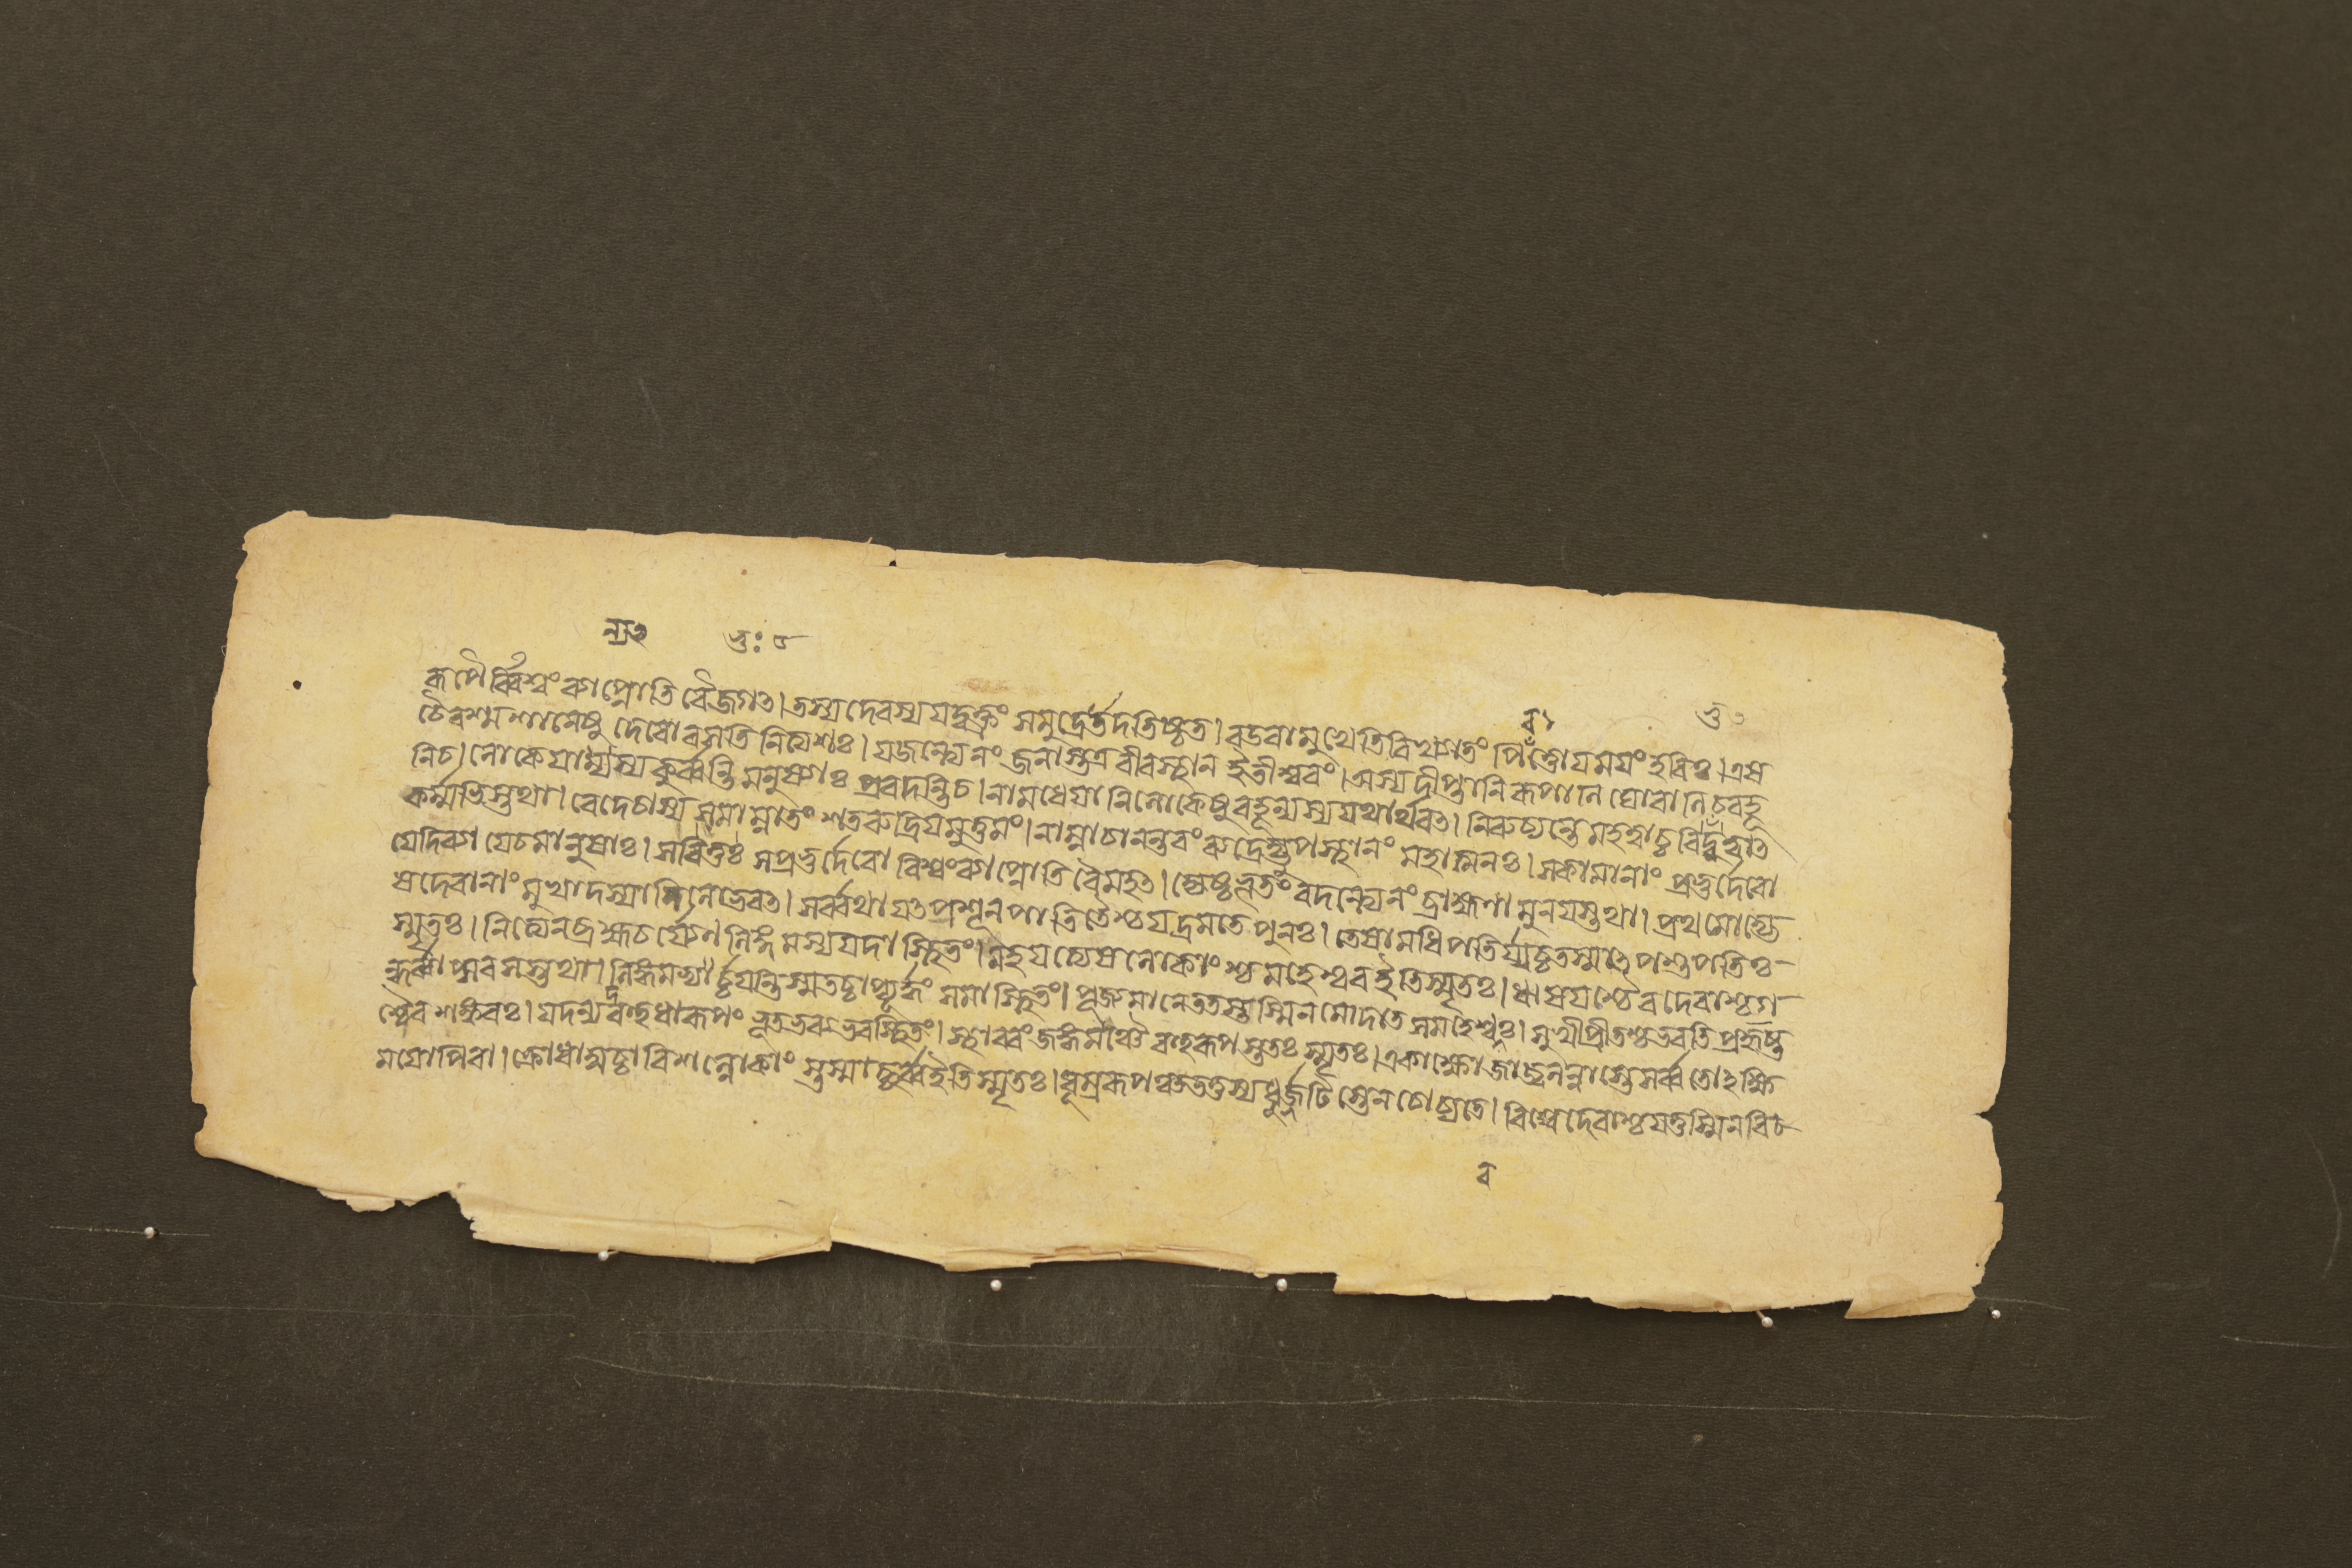 রূপৈর্ব্বিশ্বং ব্যাপ্নোতি বৈ জগৎ। তস্য দেবস্য যদ্বক্ত্রং সমুদ্রে তদতিষ্ঠত। বডবামুখেতি বিখ্যাতং পিবঁত্তোয়ময়ং হবিঃ। এষ
চৈব শ্মশানেষু দেবো বসতি নিত্যশঃ। যজন্ত্যেনং জনাস্তত্র বীরস্থান ইতীশ্বরং। অস্য দীপ্তানি রূপানি ঘোরানি চ বহূ
নি চ। লোকে যান্যস্য কুর্ব্বন্তি মনুষ্যাঃ প্রবদন্তি চ। নামধেয়ানি লোকেষু বহূন্যস্য যথার্থবৎ। নিরুচ্যন্তে মহত্বাচ্চ বিভুত্বাৎ
কর্ম্মভিস্তথা। বেদে চাস্য সমাম্নাতং শতরুদ্রিয়মুত্তমং। নাম্না চানন্তরং রুদ্রেত্যুপস্থানং মহাত্মনঃ। স কামানাং প্রভুর্দেবো
যে দিব্যা যে চ মানুষাঃ। স বিভুঃ স প্রভুর্দেবো বিশ্বং ব্যাপ্নোতি বৈ মহৎ। জ্যেষ্ঠভূতং বদন্ত্যেনং ব্রাহ্মণা মুনয়স্তথা। প্রথমো হ্যে
ষ দেবানাং মুখাদস্যানিলোভবৎ। সর্ব্বথা যৎ পশূন্ পাতি তৈশ্চ যদ্রমতে পুনঃ। তেষামধিপতির্য্যচ্চ তস্মাৎ পশুপতিঃ
স্মৃতঃ। নিত্যেন ব্রহ্মচর্য্যেণ লিঙ্গমস্য যদা স্থিতং। মহয়ত্যেষ লোকাংশ্চ মহেশ্বর ইতি স্মৃতঃ। ঋষয়শ্চৈব দেবাশ্চ গ
ন্ধর্ব্বাপ্সরসস্তথা। লিঙ্গমস্যার্চ্চয়ন্তি স্ম তচ্চাপ্যূর্দ্ধং সমাস্থিতং। পূজ্যমানে ততস্তস্মিন্ মোদতে স মহেশ্বরঃ। সুখী প্রীতশ্চ ভবতি প্রহৃষ্ট
শ্চৈব শঙ্করঃ। যদস্য বহুধা রূপং ভূতভব্যভবস্থিতং। স্থাবরং জঙ্গমঞ্চৈব বহুরূপস্ততঃ স্মৃতঃ। একাক্ষো জাজ্বলন্নাস্তে সর্ব্বতোঽক্ষি
ময়োপি বা। ক্রোধাদ্যশ্চাবিশল্লোকাংস্তস্মাচ্ছর্ব্ব ইতি স্মৃতঃ। ধূম্ররূপঞ্চ যত্তস্য ধূর্জ্জটিস্তেন চোচ্যতে। বিশ্বেদেবাশ্চ যত্তস্মিন্